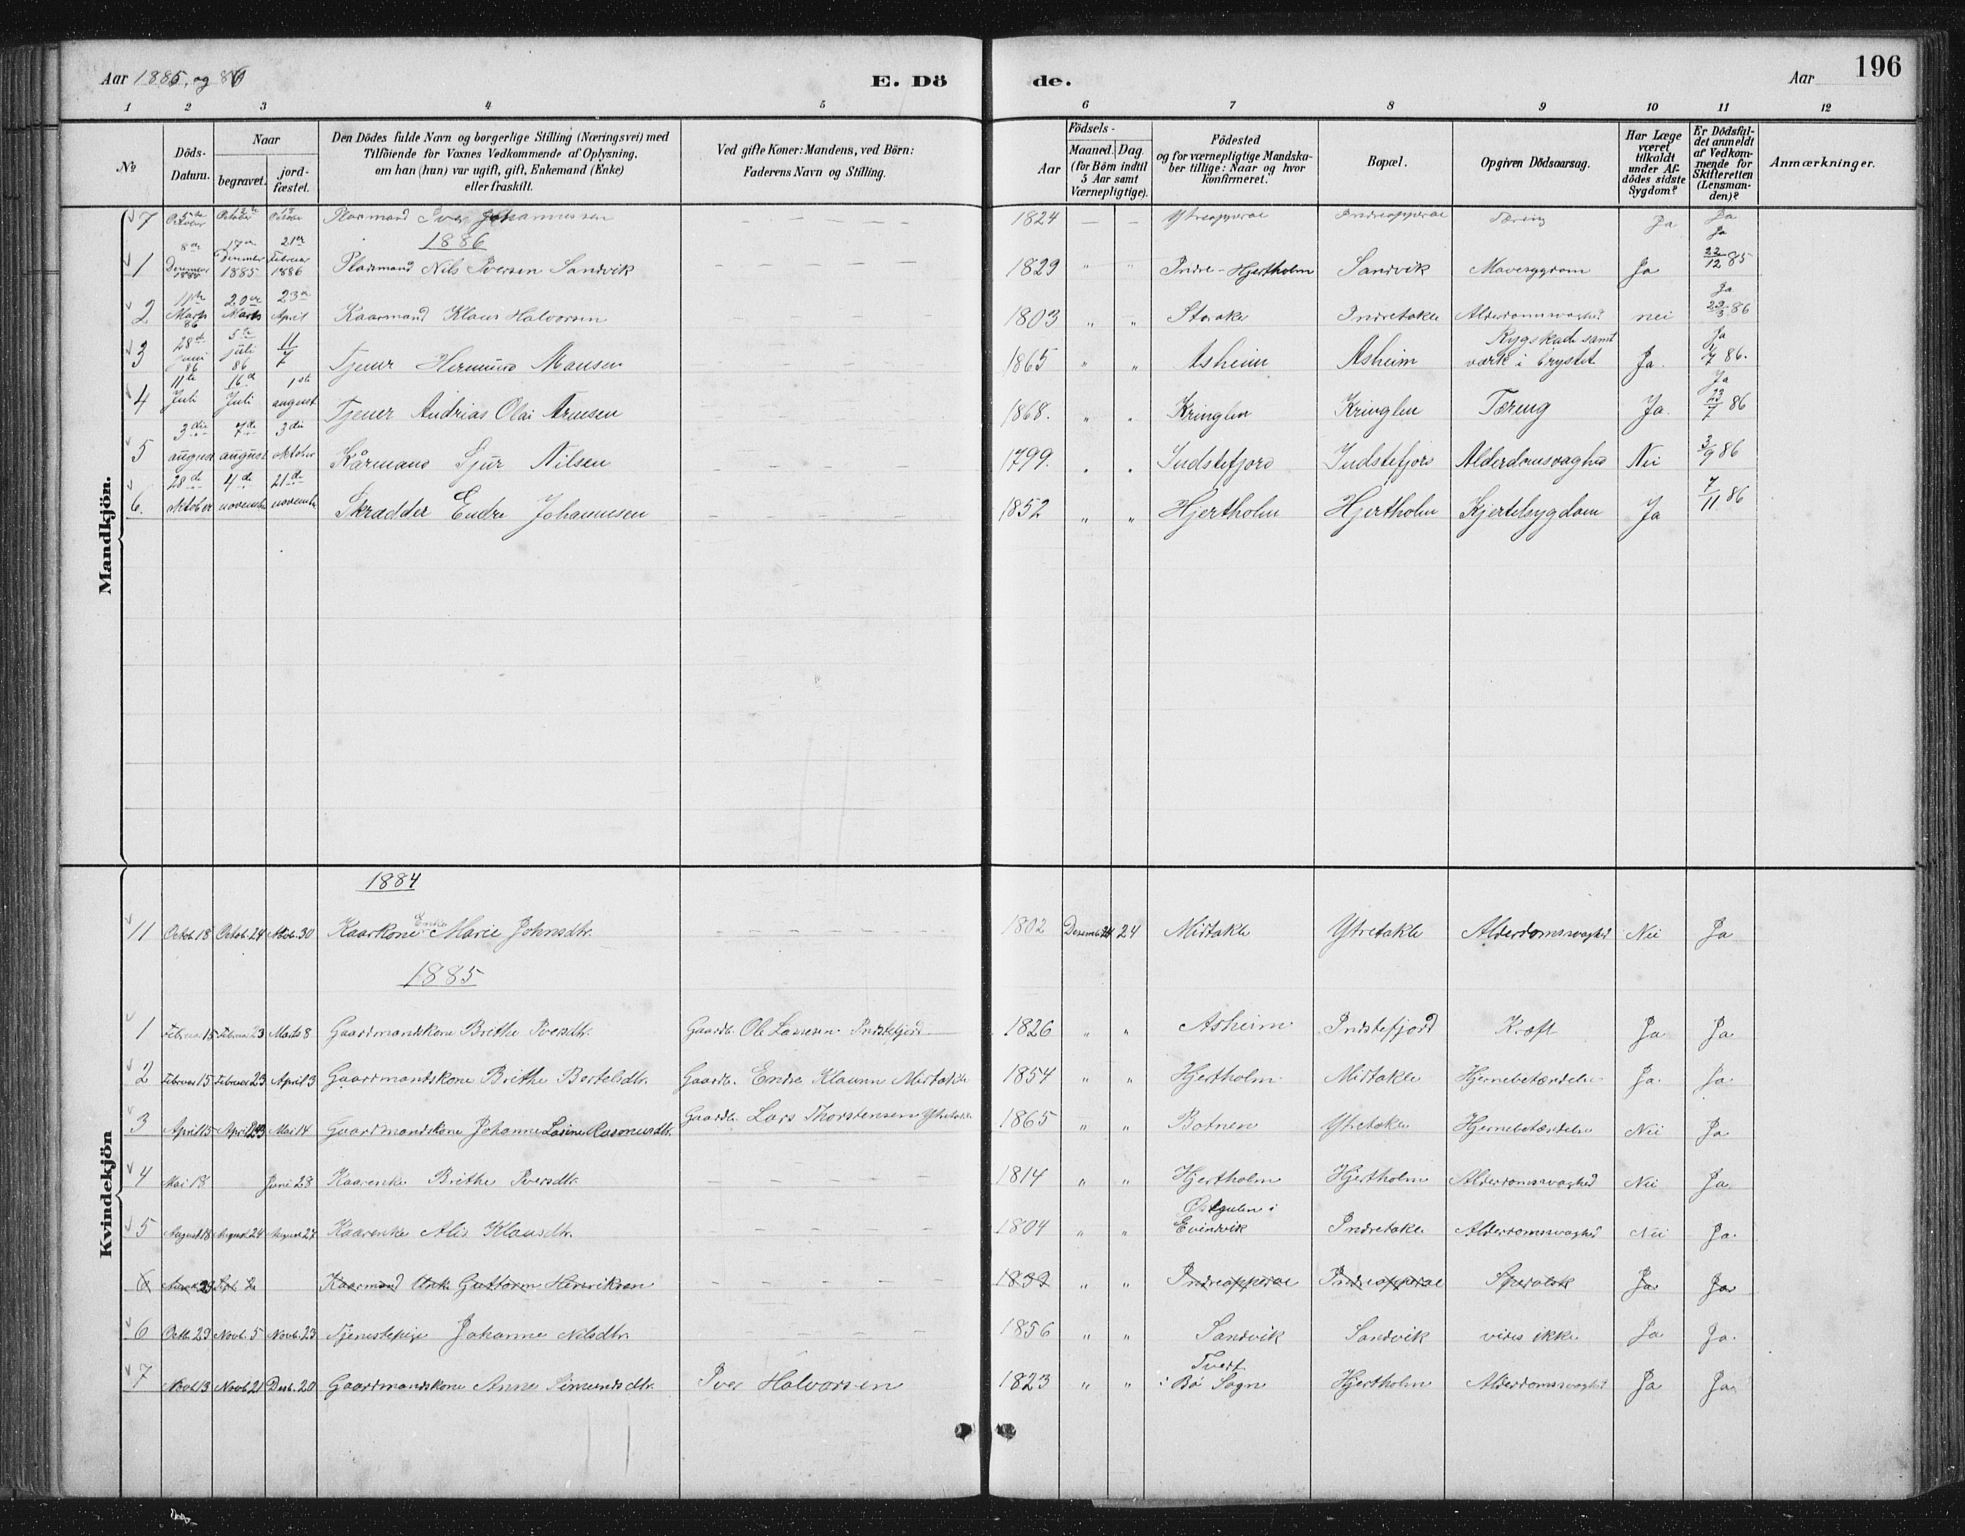 Aar 1885 og 86 E. Dö de. Aar 196
1 2 3 4 5 6 7 8 9 10 11 12
No Döds-Datum. Naar begravet. jord-fæstet. Den Dödes fulde Navn og borgerlige Stilling (Næringsvei) med Tilföiende for Voxnes Vedkommende af Oplysning. om han (hun) var ugift, gift, Enkemand (Enke) eller fraskilt. Ved gifte Koner: Mandens, ved Börn: Faderens Navn og Stilling. Aar Födsels- Maaned. Dag. (for Börn indtil 5 Aar samt Værnepligtige). Födested og for værnepligtige Mandskaber tillige: Naar og hvor konfirmeret. Bopæl. Opgiven Dödsaarsag. Har Læge været tilkaldt under Afdödes sidste Sygdom? Er Dödsfaldet anmeldt af Vedkommende for Skifteretten (Lensmanden)? Anmærkninger.
Mandkjön.
7 5te October October October Iver Johannessen 1824 Ytreopperae Indreopperae Tæring Ja Ja
1886
1 8de Decmber 1885 17de Decmber 1885 21de Februar 1886 Nils Iversen Sandvik 1829 " " Indre-Hjertholm Sandvik Mavesygdom Ja Ja 22/12 85
2 11te Marts 86 20de Marts 23de April Kaarmand Klaus Halvorsen 1803 " " Indretakle Alderdomssvaghed nei Ja 86
3 28de juni 86 5te juli 86 11/7 Tjener Hermund Monsen 1865 " " Asheim Asheim Rygskade samt værk i brystet Ja Ja 7 86.
4 11te Juli 16de Juli 1ste august Tjener Andrias Olai Arnesen 1868. " " Kringlen Kringlen Tæreng Ja. Ja 7 86
5 3die august 7de august 3die oktober Kårmand Sjur Nilsen 1799. " " Indstefjord Indstefjord Alderdomsvaghed Nei 3/9 86
6. 28de oktober 4de november 21de november Skrædder Endre Johannesen 1852 " " Hjertholm Hjertholm Kjertelsygdom Ja 7/11 86
Kvindekjön
1884
11 Octob. 18 Octob. 24 Novb. 30 Kaarkone Enke Marie Johnsdtr. 1802 Desemb. 24 24 Midtakle Ytretakle Alderdomssvaghed Nei Ja
1885
1 Februar 15 Februar 23 Marts 8 Gaardmandskone Brithe Iversdtr. Gaardb. Ole Lassesen Indstefjord 1826 " " Asheim Indstefjord Kræft Ja Ja
2 Februar 15 Februar 23 April 3 Gaardmandskone Brithe Bertelsdtr. Gaardb. Endre Klausen Midtakle 1854 " " Hjertholm Midtakle Hjernebetændelse Ja Ja
3 April 15 April 23 Mai 14 Gaardmandskone Johanne Lasine Rasmusdtr. Gaardb. Lars Thorstensen Ytretakle 1865 " " Botnen Ytretakle Hjernebetændelse Nei Ja
4 Mai 18 Juni 28 Kaarenke Brithe Iversdtr. 1814 " " Hjertholm Hjertholm Alderdomssvaghed Nei Ja
5 August 18 August 24 August 27 Kaarenke Alis Klausdtr. 1804 " " Østgulen i Evindvik Indretakle Alderdomssvaghed Nei Ja.
6 August 29 Sept. 2 Kaarmand Guttorm Henriksen 1832 " " Indreopperae Indreopperae Spedalsk Ja Ja
6 Octb. 23 Novb. 5 Novb. 23 Tjenestepige Johanne Nilsdtr. 1856 " " Sandvik Sandvik vides ikke Ja Ja.
7 Novb. 13 Novb. 21 Desb. 20 Gaardmandskone Anne Simensdtr. Iver Halvorsen 1823 " " Tvert i Bø Sogn Hjertholm Alderdomssvaghed Ja Ja